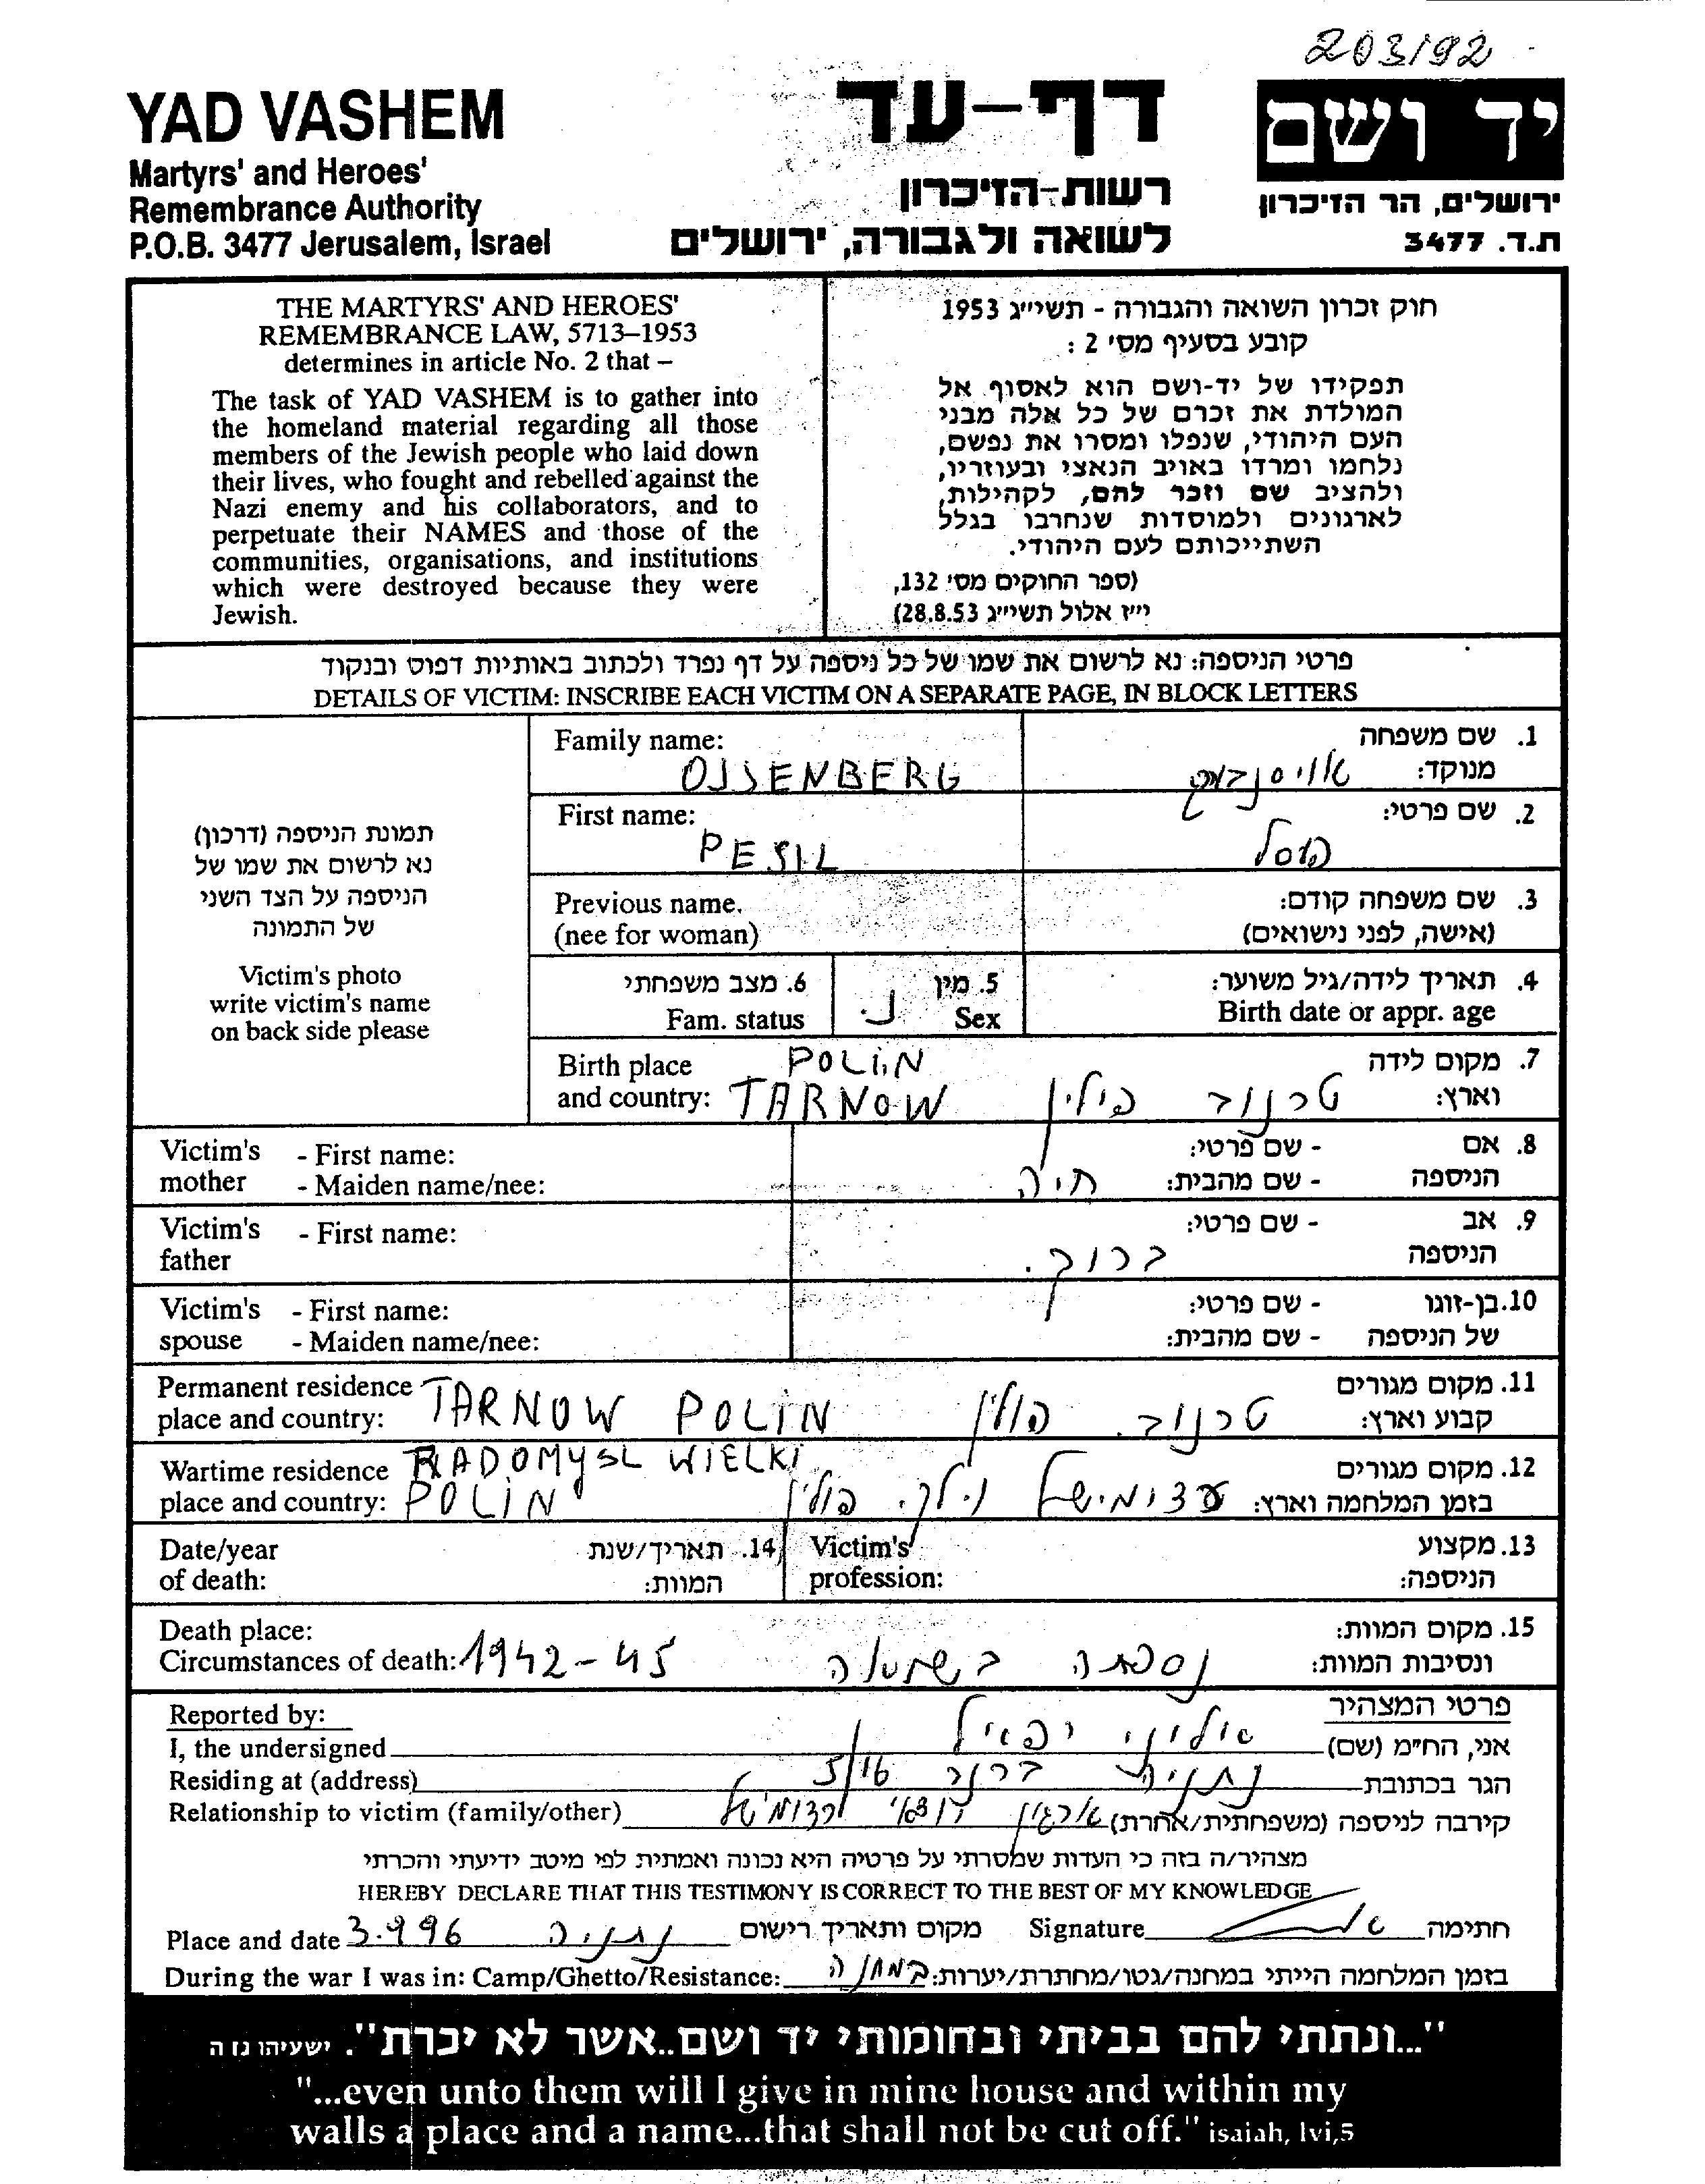 203/92
YAD VASHEM
Martyrs' and Heroes'
Remembrance Authority
P.O.B. 3477 Jerusalem, Israel
דף-עד
רשות-הזיכרון
לשואה ולגבורה, ירושלים
יד ושם
ירושלים, הר הזיכרון
ת.ד. 3477
THE MARTYRS' AND HEROES'
REMEMBRANCE LAW, 5713–1953
determines in article No. 2 that –
The task of YAD VASHEM is to gather into
the homeland material regarding all those
members of the Jewish people who laid down
their lives, who fought and rebelled against the
Nazi enemy and his collaborators, and to
perpetuate their NAMES and those of the
communities, organisations, and institutions
which were destroyed because they were
Jewish.
חוק זכרון השואה והגבורה - תשי״ג 1953
קובע בסעיף מס׳ 2 :
תפקידו של יד-ושם הוא לאסוף אל
המולדת את זכרם של כל אלה מבני
העם היהודי, שנפלו ומסרו את נפשם,
נלחמו ומרדו באויב הנאצי ובעוזריו,
ולהציב שם וזכר להם, לקהילות,
לארגונים ולמוסדות שנחרבו בגלל
השתייכותם לעם היהודי.
(ספר החוקים מס׳ 132,
י״ז אלול תשי״ג 28.8.53)
פרטי הניספה: נא לרשום את שמו של כל ניספה על דף נפרד ולכתוב באותיות דפוס ובנקוד
DETAILS OF VICTIM: INSCRIBE EACH VICTIM ON A SEPARATE PAGE, IN BLOCK LETTERS
תמונת הניספה (דרכון)
נא לרשום את שמו של
הניספה על הצד השני
של התמונה
Victim's photo
write victim's name
on back side please
Family name: 1. שם משפחה
OJSENBERG אויסנברג מנוקד:
First name: 2. שם פרטי:
PESIL פסל
Previous name. 3. שם משפחה קודם:
(nee for woman) (אישה, לפני נישואים)
6. מצב משפחתי 5. מין 4. תאריך לידה/גיל משוער:
Fam. status נ. Sex Birth date or appr. age
Birth place POLIN 7. מקום לידה
and country: TARNOW טרנוב פולין וארץ:
Victim's - First name: - שם פרטי: 8. אם
mother - Maiden name/nee: חיה - שם מהבית: הניספה
Victim's - First name: - שם פרטי: 9. אב
father ברוך. הניספה
Victim's - First name: - שם פרטי: 10. בן-זוגו
spouse - Maiden name/nee: - שם מהבית: של הניספה
Permanent residence 11. מקום מגורים
place and country: TARNOW POLIN טרנוב. פולין קבוע וארץ:
Wartime residence RADOMYSL WIELKI 12. מקום מגורים
place and country: POLIN וילק. פולין בזמן המלחמה וארץ:
Date/year 14. תאריך/שנת Victim's 13. מקצוע
of death: המוות: profession: הניספה:
Death place: 15. מקום המוות:
Circumstances of death: 1942-45 נספתה בשואה ונסיבות המוות:
Reported by: פרטי המצהיר
I, the undersigned אלוני אני, הח״מ (שם)
Residing at (address) נתניה ברנר 5/16 הגר בכתובת
Relationship to victim (family/other) ארגון יוצאי רדומישל קירבה לניספה (משפחתית/אחרת)
מצהיר/ה בזה כי העדות שמסרתי על פרטיה היא נכונה ואמתית לפי מיטב ידיעתי והכרתי
HEREBY DECLARE THAT THIS TESTIMONY IS CORRECT TO THE BEST OF MY KNOWLEDGE
Place and date 3.9 96 נתניה מקום ותאריך רישום Signature חתימה
During the war I was in: Camp/Ghetto/Resistance: במחנה בזמן המלחמה הייתי במחנה/גטו/מחתרת/יערות:
"...ונתתי להם בביתי ובחומותי יד ושם..אשר לא יכרת". ישעיהו נו ה
"...even unto them will I give in mine house and within my
walls a place and a name...that shall not be cut off." isaiah, lvi,5